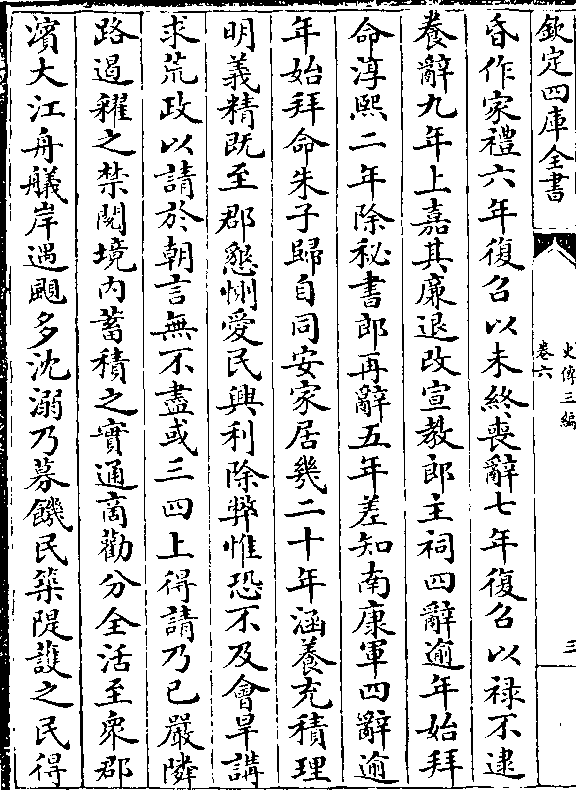 欽定四庫全書
史傳三編
卷六
三
昏作家禮六年復召以未終喪辭七年復召以禄不逮
養辭九年上嘉其廉退改宣教郎主祠四辭逾年始拜
命淳熙二年除秘書郎再辭五年差知南康軍四辭逾
年始拜命朱子歸自同安家居幾二十年涵養充積理
明義精既至郡懇惻愛民興利除弊惟恐不及會旱講
求荒政以請於朝言無不盡或三四上得請乃已嚴隣
路遏糴之禁閱境内蓄積之實通商勸分全活至衆郡
濱大江舟艤岸遇颶多沈溺乃募饑民築隄護之民得